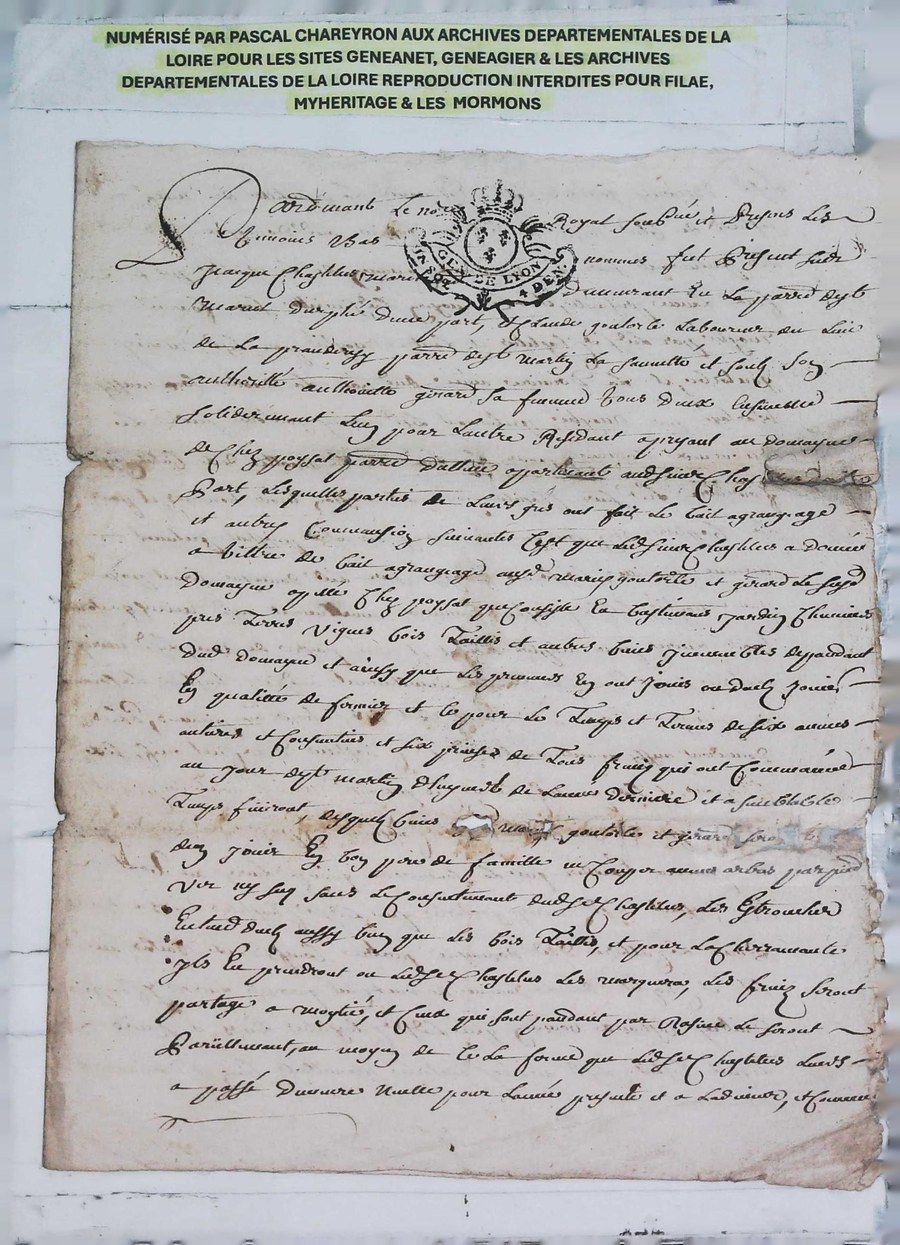 NUMÉRISÉ PAR PASCAL CHAREYRON AUX ARCHIVES DEPARTEMENTALES DE LA
LOIRE POUR LES SITES GENEANET, GENEAGIER & LES ARCHIVES
DEPARTEMENTALES DE LA LOIRE REPRODUCTION INTERDITES POUR FILAE,
MYHERITAGE & LES MORMONS
Pardevant Le no Royal soubné et Presens Les
Temoings Bas nommes fut Present sieur
Jacque Chastelus
GEN DE LYON
4 DEN.
Demeurant En La parre dyst
d'une part, et Claude goutorbe Laboureur du Lieu
de La parre dyst martin La sauveté et soub son
authorité anthoinette girard sa femme tous deux Ensemble
solidairement Lun pour Lautre Residant apresant au domayne
de Chez poyssat parre appartenant audsieur Chas
Part, Lesquelles parties de Leurs grés ont fait Le bail agrangeage
et autres Convansion suivantes Cest que Ledsieur Chastelus a donné
a tiltre de bail agrangeage ausd mariés goutorbe et girard Le susd
Domayne apellé Chez poyssat que Consiste En bastimens jardin Chenevier
prés Terres Vignes bois Taillis et autres biens jmeubles depandant
dud domayne et ainssy que Les preneurs En ont Jouis ou dub Jouir
En qualitté de fermier et ce pour Le Temps et Terme de six annés
antieres et Consecutives et six prinses de Tous fruits qui ont Commancé
au jour dyst martin de Lannée derniere et a semblable
Temps finiront, desquels biens goutorbe et girard
den Jouir En bon pere de famille ne Couper aucuns arbres par pied
Ver ny seq sans Le Consentement dudsr Chastelus, Les
aussy bien que Les bois Taillis, et pour
yls En prendront ou Ledsr Chastelus Les marquera, Les fruits seront
partagé a moytié, et Ceux qui sont pandant par Rasine Le seront
Pareillement, au moyen de ce La ferme que Ledsr Chastelus Leurs
a passé Demeure Nulle pour Lannée presente et a Ladvenir, et Comme